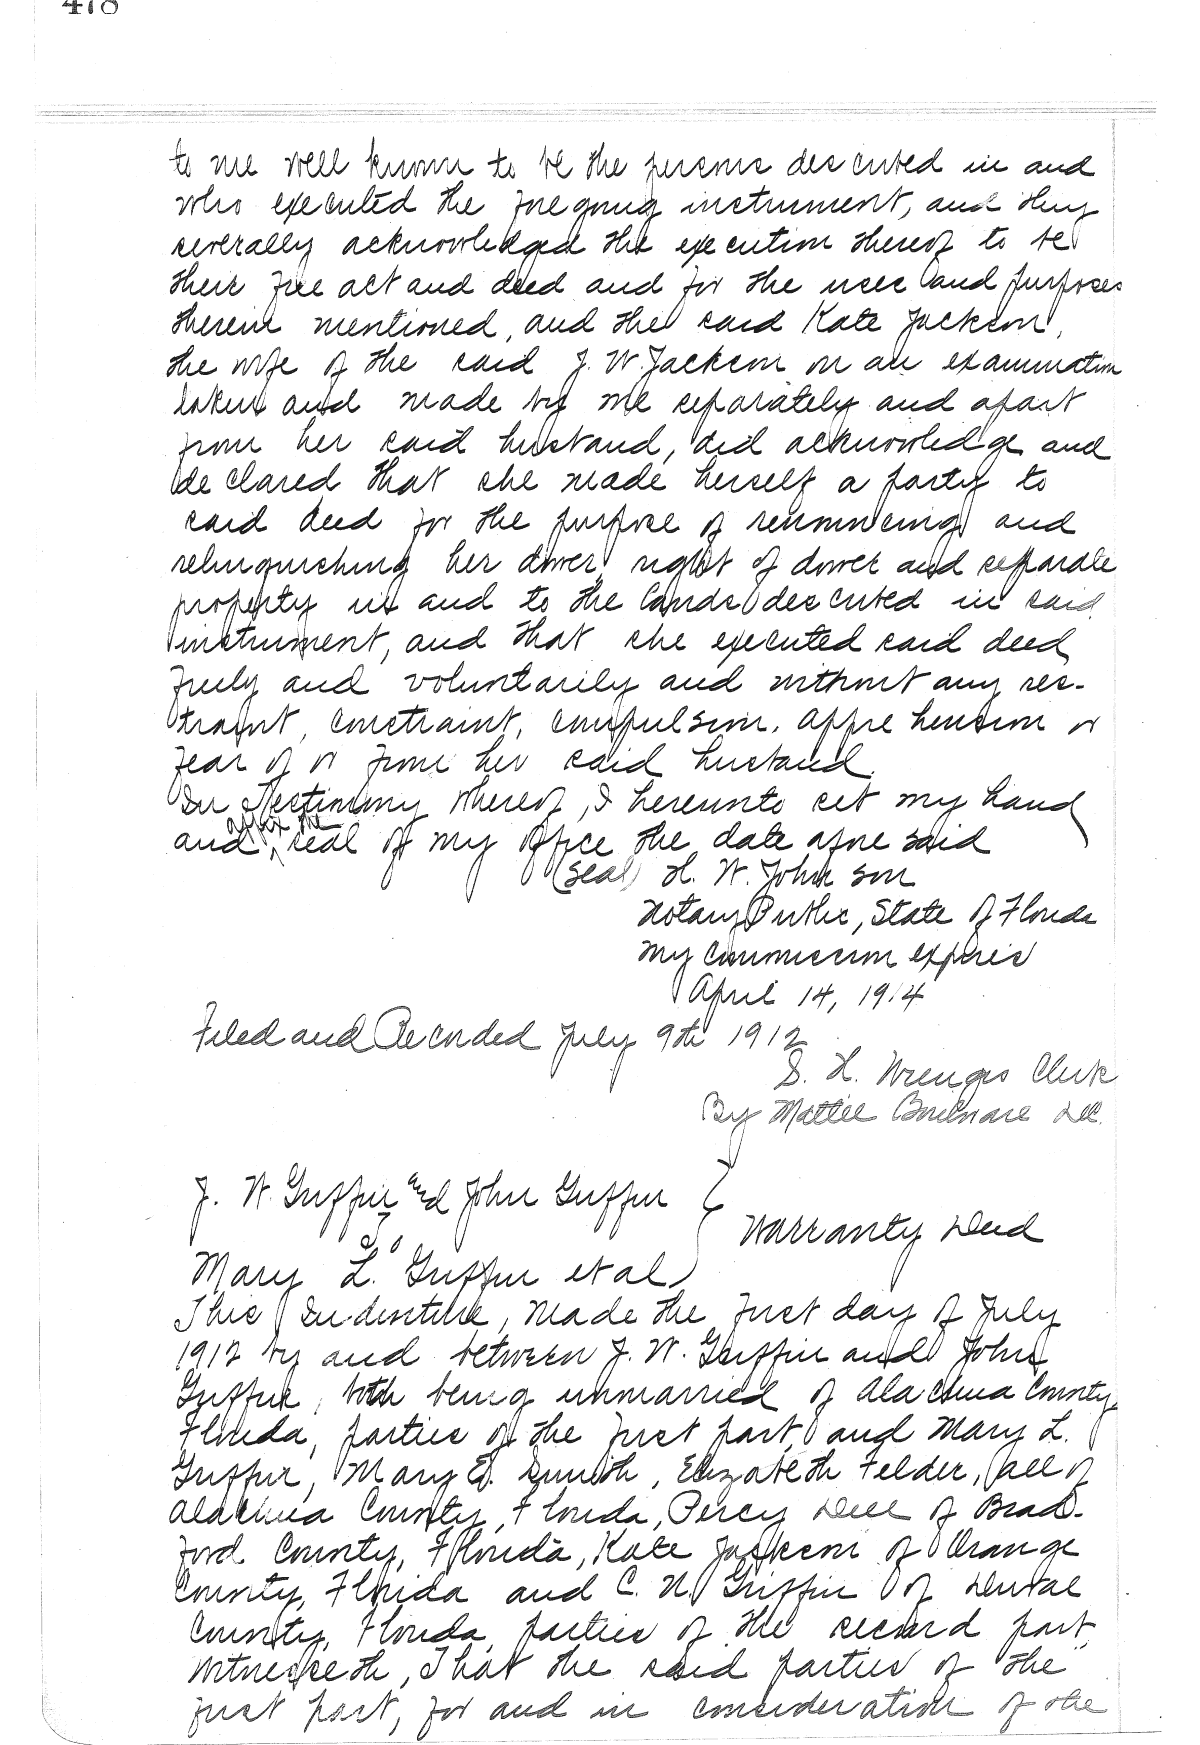 478
to me well known to be the persons described in and
who executed the foregoing instrument, and they
severally acknowledged the execution thereof to be
their free act and deed and for the uses and purposes
therein mentioned, and the said Kate Jackson,
the wife of the said J. W. Jackson on an examination
taken and made by me separately and apart
from her said husband, did acknowledge and
declared that she made herself a party to
said deed for the purpose of renouncing and
relinquishing her dower, right of dower and separate
property in and to the lands described in said
instrument, and that she executed said deed
freely and voluntarily and without any res-
traint, constraint, compulsion, apprehension or
fear of or from her said husband.
In Testimony whereof, I hereunto set my hand
and affix the seal of my office the date aforesaid
(Seal) H. W. Johnson
Notary Public, State of Florida
My Commission expires
April 14, 1914
Filed and Recorded July 9th 1912
S. H. Wienges Clerk
By Mattie D.C.
J. W. Griffin and John Griffin
To
Warranty Deed
Mary L. Griffin et al
This Indenture, Made the first day of July
1912 by and between J. W. Griffin and John
Griffin, both being unmarried of Alachua County,
Florida, parties of the first part, and Mary L.
Griffin, Mary E. Smith, Elizabeth Felder, all of
Alachua County, Florida, Percy Dell of Brad-
ford County, Florida, Kate Jackson of Orange
County, Florida and C. N. Griffin of Duval
County, Florida, parties of the second part,
Witnesseth, That the said parties of the
first part, for and in consideration of the